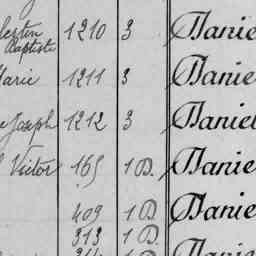 lestin Baptiste 1210 3 Danie
Marie 1211 3 Danie
e Joseph 1212 3 Daniel
l Victor 165 1 D. Danie
409 1 D Danie
313 1 D.
314 1 D Danie